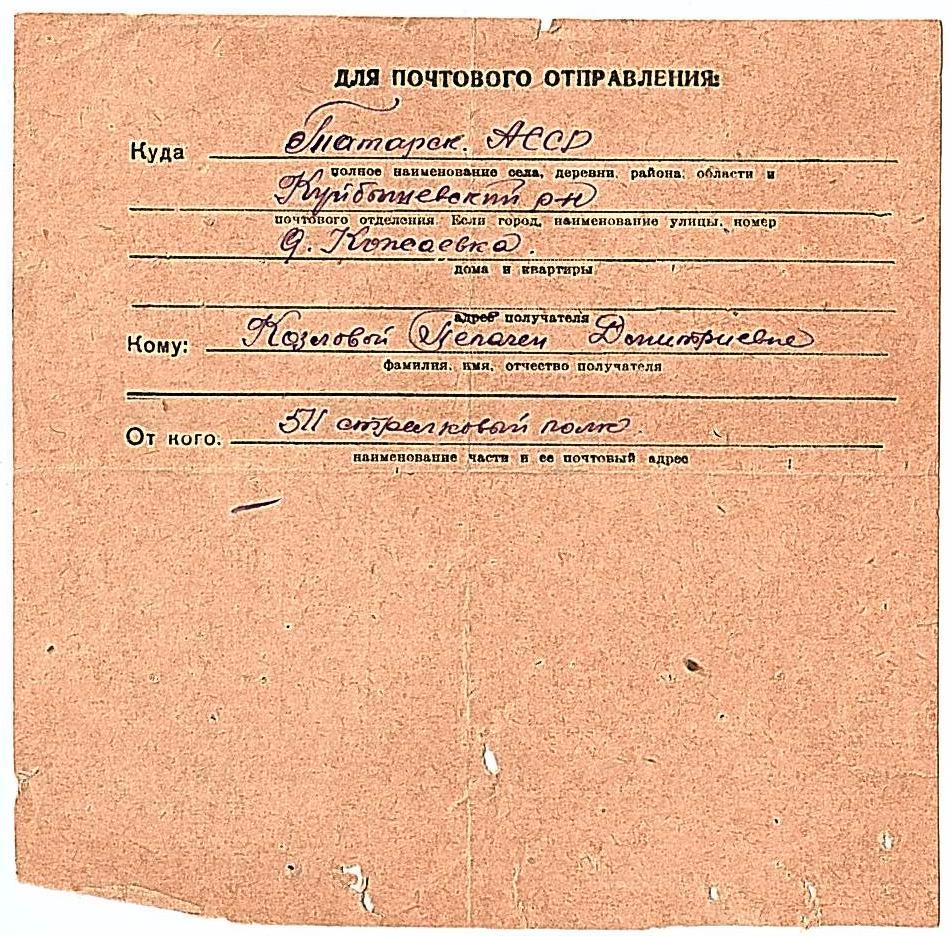 ДЛЯ ПОЧТОВОГО ОТПРАВЛЕНИЯ:
Куда Татарск. АССР
полное наименование села, деревни, района, области и
Куйбышевский р-н
почтового отделения. Если город, наименование улицы, номер
д. Кожаевка.
дома и квартиры
адрес получателя
Кому: Козловой Дмитриевне
фамилия, имя, отчество получателя
От кого. 511 стрелковый полк.
наименование части и ее почтовый адрес